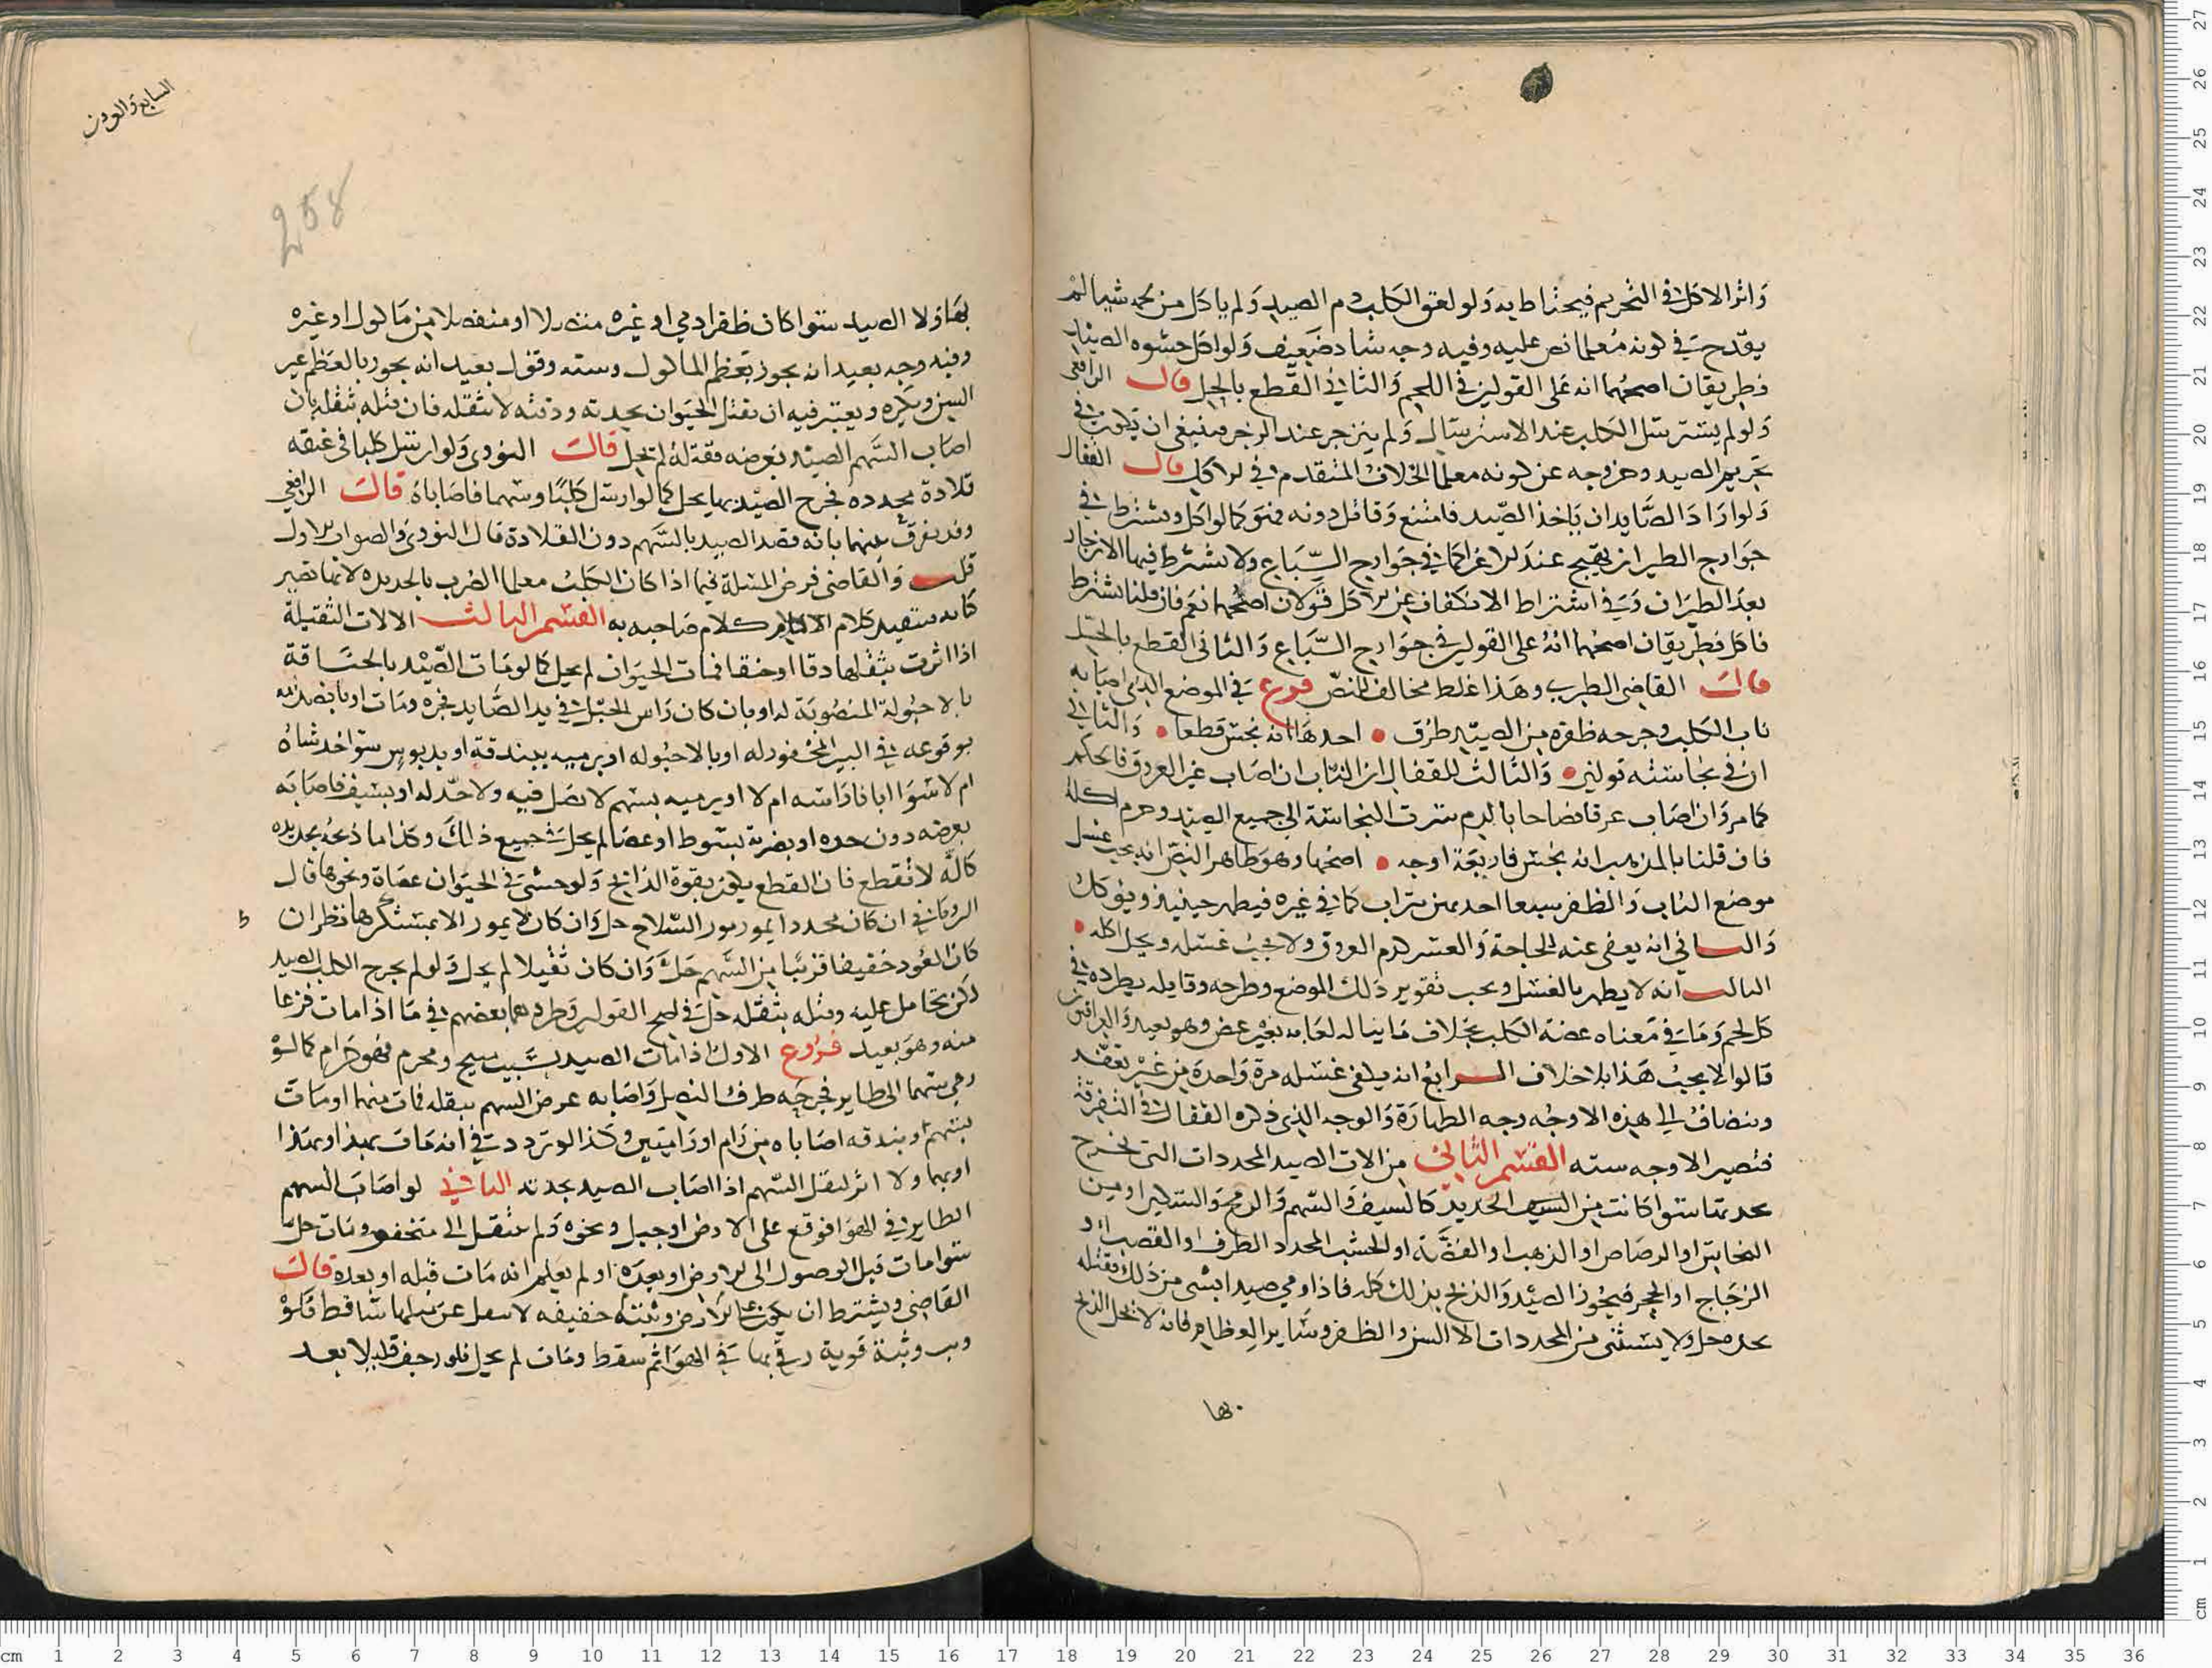 واثر الاكل في التحريم فيحتاط به ولو لعق الكلب دم الصيد ولم ياكل من لحمه شيا لم
يقدح في كونه معلما نص عليه وفيه وجه شاذ ضعيف ولو اكل حشوه الصيد
فطريقان اصحهما انه على القولين في اللحم والثاني القطع بالحل قال الرافعي
ولو لم يسترسل الكلب عند الاسترسال ولم ينزجر عند الزجر فينبغي ان يكون في
تحريم الصيد وخروجه عن كونه معلما الخلاف المتقدم في الاكل قال القفال
ولو اراد الصايد ان ياخذ الصيد فامتنع وقاتل دونه فهو كما لو اكل ويشترط في
جوارح الطير ان يهيج عند الاغرا كما في جوارح السباع ولا يشترط فيها الانزجار
بعد الطيران وفي اشتراط الانكفاف عن الاكل قولان اصحهما نعم فان قلنا يشترط
فاكل فطريقان اصحهما انه على القولين في جوارح السباع والثاني القطع بالحل
قال القاضي الطبري وهذا غلط مخالف للنص فرع في الموضع الذي اصابه
ناب الكلب وجرحه ظفره من الصيد طرق احدها انه نجس قطعا والثاني
ان في نجاسته قولين والثالث للقفال ان الناب ان اصاب غير العروق فالحكم
كما مر وان اصاب عرقا نضاحا بالدم سرت النجاسة الى جميع الصيد وحرم اكله
فان قلنا بالمذهب انه نجس فاربعة اوجه اصحها وهو ظاهر النص انه يجب غسل
موضع الناب والظفر سبعا احديهن بتراب كما في غيره فيطهر حينيذ ويوكل
والثاني انه يعفى عنه للحاجة والعسر كدم العروق ولا يجب غسله ويحل اكله
الثالث انه لا يطهر بالغسل ويجب تقوير ذلك الموضع وطرحه وقايله يطرده في
كل لحم وما في معناه عضة الكلب بخلاف ما يناله لعابه بغير عض وهو بعيد والعراقيون
قالوا لا يجب هذا بلا خلاف الرابع انه يكفي غسله مرة واحدة من غير تعفير
وينضاف الى هذه الاوجه وجه الطهارة والوجه الذي ذكره القفال في التفرقة
فتصير الاوجه سته القسم الثاني من الات الصيد المحددات التي تخرج
بحدتها سوا كانت من الحديد كالسيف والسهم والرمح والسكين او من
النحاس او الرصاص او الذهب او الفضة او الخشب المحدد الطرف او القصب او
الزجاج او الحجر فيجوز الصيد والذبح بذلك كله فاذا رمي صيدا بشي من ذلك فقتله
بحده حل ولا يستثنى من المحددات الا السن والظفر وساير العظام فانه لا يحل الذبح
بها
السابع والعشرون
258
بها ولا الصيد سوا كان ظفر ادمي او غيره متصلا او منفصلا من ماكول او غيره
وفيه وجه بعيد انه يجوز بعظم الماكول وسنه وقول بعيد انه يجوز بالعظم غير
السن ويكره ويعتبر فيه ان يقتل الحيوان بحدته ودقته لا بثقله فان قتله بثقله بان
اصاب السهم الصيد بعرضه فقتله لم يحل قال النووي ولو ارسل كلبا في عنقه
قلادة محدده فجرح الصيد بها يحل كما لو ارسل كلبا وسهما فاصاباه قال الرافعي
وقد يفرق بينهما بانه قصد الصيد بالسهم دون القلادة قال النووي والصواب الاول
قلت والقاضي فرض المسلة فيما اذا كان الكلب معلما الضرب بالحديده لانها تصير
كانه فيتقيد كلام الامام كلام صاحبه به القسم الثالث الالات الثقيلة
اذا اثرت بثقلها دقا او خنقا فمات الحيوان لم يحل كما لو مات الصيد بانخناقة
بالاحبولة المنصوبة له او بان كان راس الحبل في يد الصايد فجره ومات او بانصدامه
بوقوعه في البير المحفور له او بالاحبوله او برميه ببندقة او بدبوس سوا خدشاه
ام لا سوا ابانا راسه ام لا او يرميه بسهم لا نصل فيه ولا حد له او بسيف فاصابه
بعرضه دون حده او بضربة بسوط او عصا لم يحل جميع ذلك وكذا ما ذبحه بحديده
كالة لا تقطع فان القطع يكون بقوة الذابح ولو حشى في الحيوان عصاة ونحوها قال
الروياني ان كان محددا يمور مور السلاح حل وان كان لا يمور الا بمستكرها نظر ان
كان العود خفيفا قريبا من السهم حل وان كان ثقيلا لم يحل ولو لم يجرح الكلب الصيد
لكن تحامل عليه وقتله بثقله حل في اصح القولين وطردهما بعضهم في ما اذا مات فزعا
منه وهو بعيد فروع الاول اذا مات الصيد بسبب مبيح ومحرم فهو حرام كما لو
رمى سهما الى طاير فجرحه طرف النصل واصابه عرض السهم بثقله فمات منهما او مات
بسهم او بندقه اصاباه من رام او راميين وكذا لو تردد في انه مات بهذا او بهذا
او بهما ولا اثر لثقل السهم اذا اصاب الصيد بحدته الثاني لو اصاب السهم
الطاير في الهوا فوقع على الارض او جبل ونحوه ولم ينتقل الى منخفض ومات حل
سوا مات قبل الوصول الى الارض او بعده او لم يعلم انه مات قبله او بعده قال
القاضي ويشترط ان يكون على الارض وثبته خفيفه ساقط فلو
وثب وثبة قوية في الهوا ثم سقط ومات لم يحل فلو زحف قليلا بعد